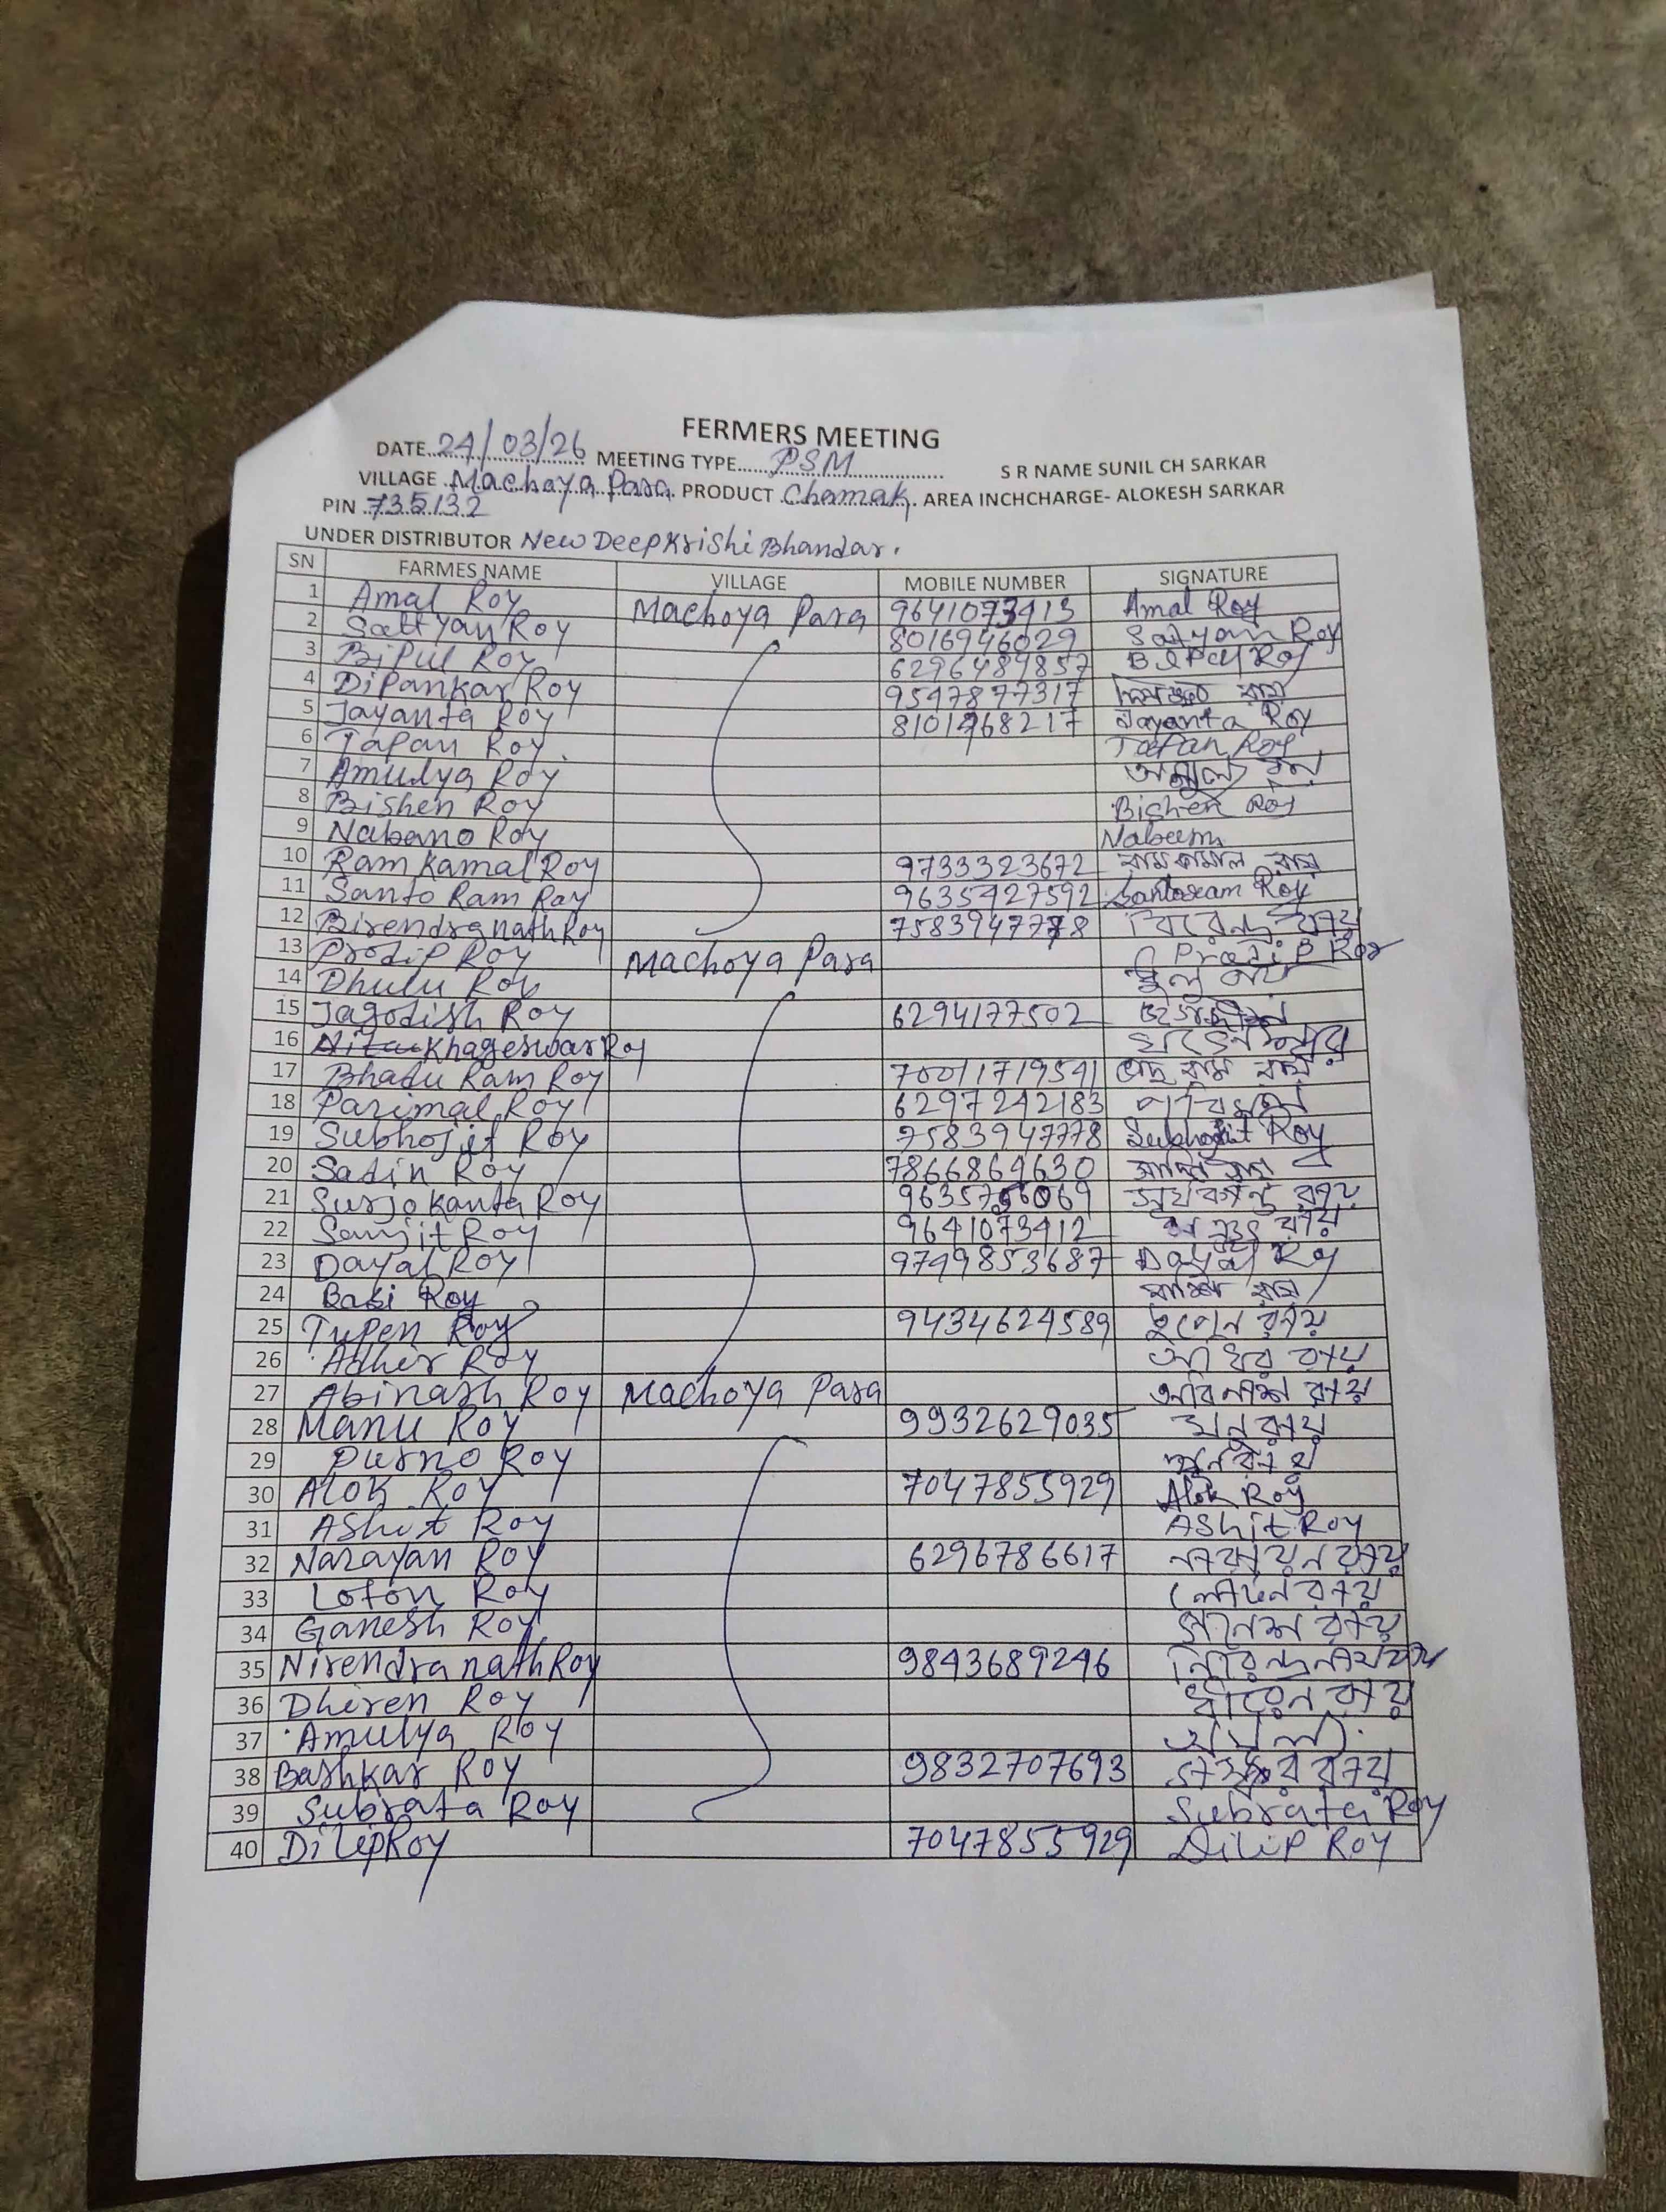 FERMERS MEETING
DATE 24/03/26 MEETING TYPE PSM S R NAME SUNIL CH SARKAR
VILLAGE Machoya Para PRODUCT Chamak AREA INCHCHARGE- ALOKESH SARKAR
PIN 735132
UNDER DISTRIBUTOR New Deep Krishi Bhandar.
SN FARMES NAME VILLAGE MOBILE NUMBER SIGNATURE
1 Amal Roy Machoya Para 9641073413 Amal Roy
2 Sattyan Roy 8016946029 Satyan Roy
3 Bipul Roy 6296489857 Roy
4 Dipankar Roy 9547877317 রায়
5 Jayanta Roy Jayanta Roy
6 Tapan Roy Tapan Roy
7 Amulya Roy অমূল্য
8 Bishen Roy Bishen Roy
9 Nabano Roy
10 Ram Kamal Roy 9733323672 রামকামাল রায়
11 Santo Ram Roy 9635427592 Santoram Roy
12 Birendra nath Roy বিরেন্দ্র রায়
13 Prodip Roy Machoya Para Prodip Roy
14 Dhulu Roy
15 Jagodish Roy 6294177502
16 Khageswar Roy
17 Bhadu Ram Roy ভাদু রাম রায়
18 Parimal Roy 6297242183
19 Subhojit Roy 7583947778 Subhojit Roy
20 Satin Roy 7866864630
21 Surjo Kanta Roy সূর্যকান্ত রায়
22 Sanjit Roy 9641073412 রায়
23 Dayal Roy 9749853687 Dayal Roy
24 Basi Roy রায়
25 Tupen Roy 9434624589 তুপেন রায়
26 Adhir Roy রায়
27 Abinash Roy Machoya Para অবিনাশ রায়
28 Manu Roy 9932629035 মনু রায়
29 Purno Roy
30 Alok Roy 7047855929 Alok Roy
31 Ashit Roy Ashit Roy
32 Narayan Roy 6296786617 নারায়ন রায়
33 Loton Roy রায়
34 Ganesh Roy গনেশ রায়
35 Nirendra nath Roy 9843689246
36 Dhiren Roy ধীরেন রায়
37 Amulya Roy
38 Bashkar Roy 9832707693 রায়
39 Subrata Roy Subrata Roy
40 Dilip Roy 7047855929 Dilip Roy